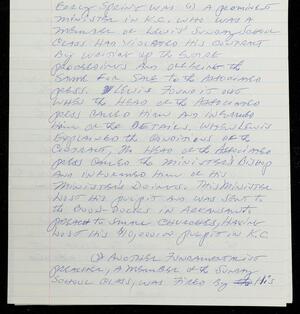 Early Spring was (1) A prominent
minister in K.C. who was a
member of Lewis' Sunday School
Class had violated his contract
by writing up the
proceedings and offering the
same for sale to the Associated
press. Lewis found it out
when the head of the Associated
press called him and informed
him of the details. When Lewis
explained the conditions of the
contract, the head of the Associated
press called the minister's Bishop
and informed him of his
minister's doings. This minister
lost his pulpit and was sent to
the in Arkansas to
preach to small churches, having
lost his $10,000.00 pulpit in K.C.
2) Another fundamentalist
preacher, a member of the Sunday
School Class, was fired by his